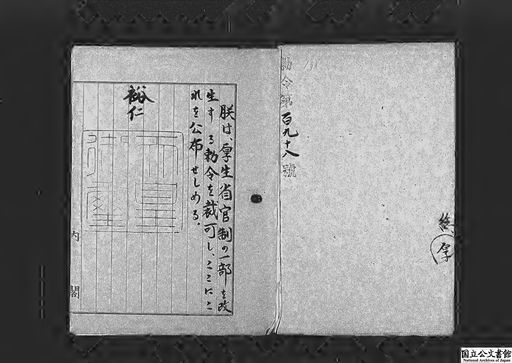 勅令第百九十八號
朕は、厚生省官制の一部を改
生する勅令を裁可し、ここにこ
れを公布せしめる。
裕仁
内閣
国立公文書館
National Archives of Japan